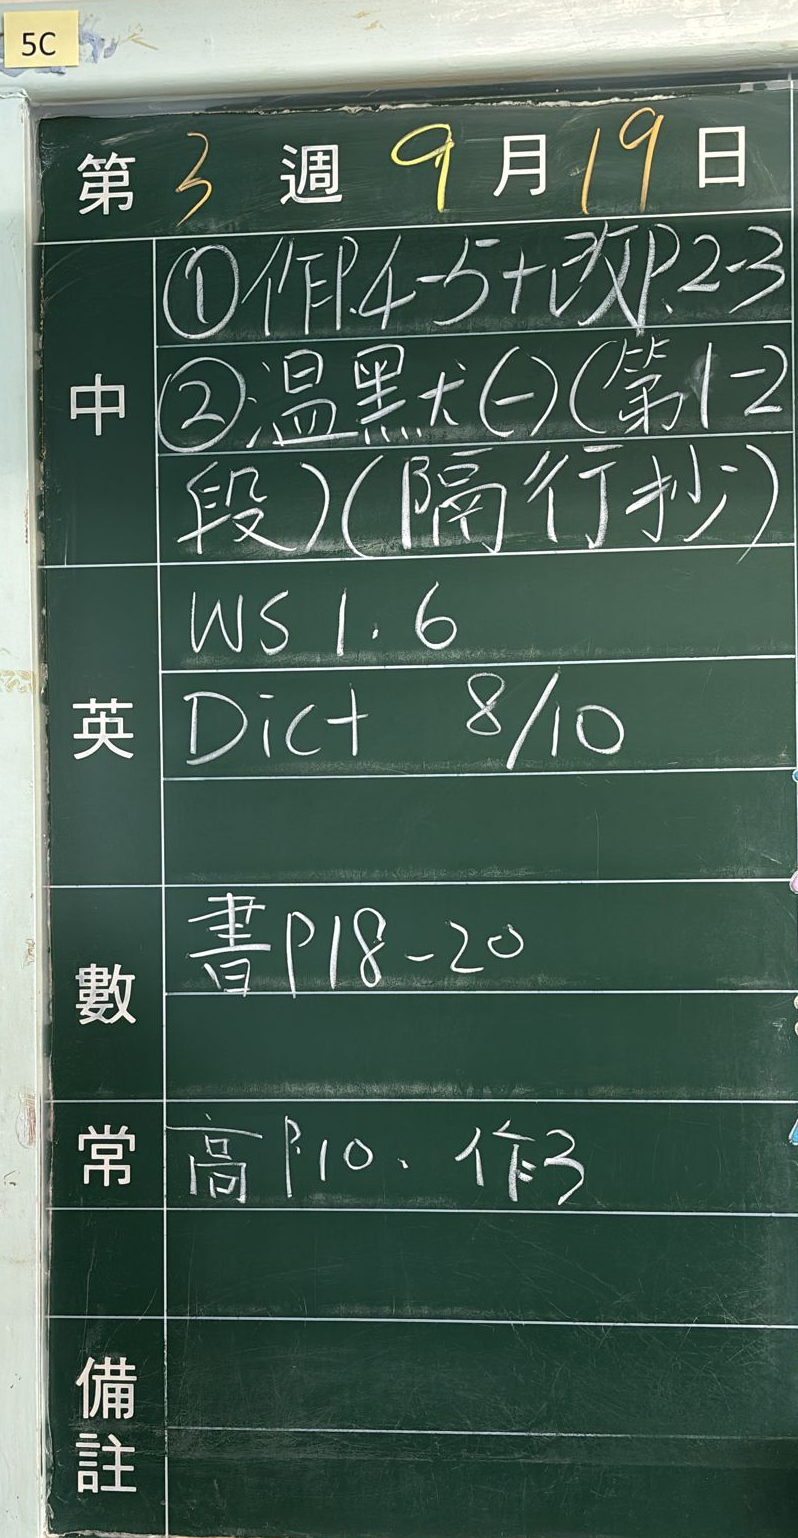 5C
第 3 週 9 月 19 日
中
①作P.4-5+改P.2-3
②温默(一)(第1-2
段)(隔行抄)
英
WS 1.6
Dict 8/10
數
書P18-20
常
高P.10、作3
備註